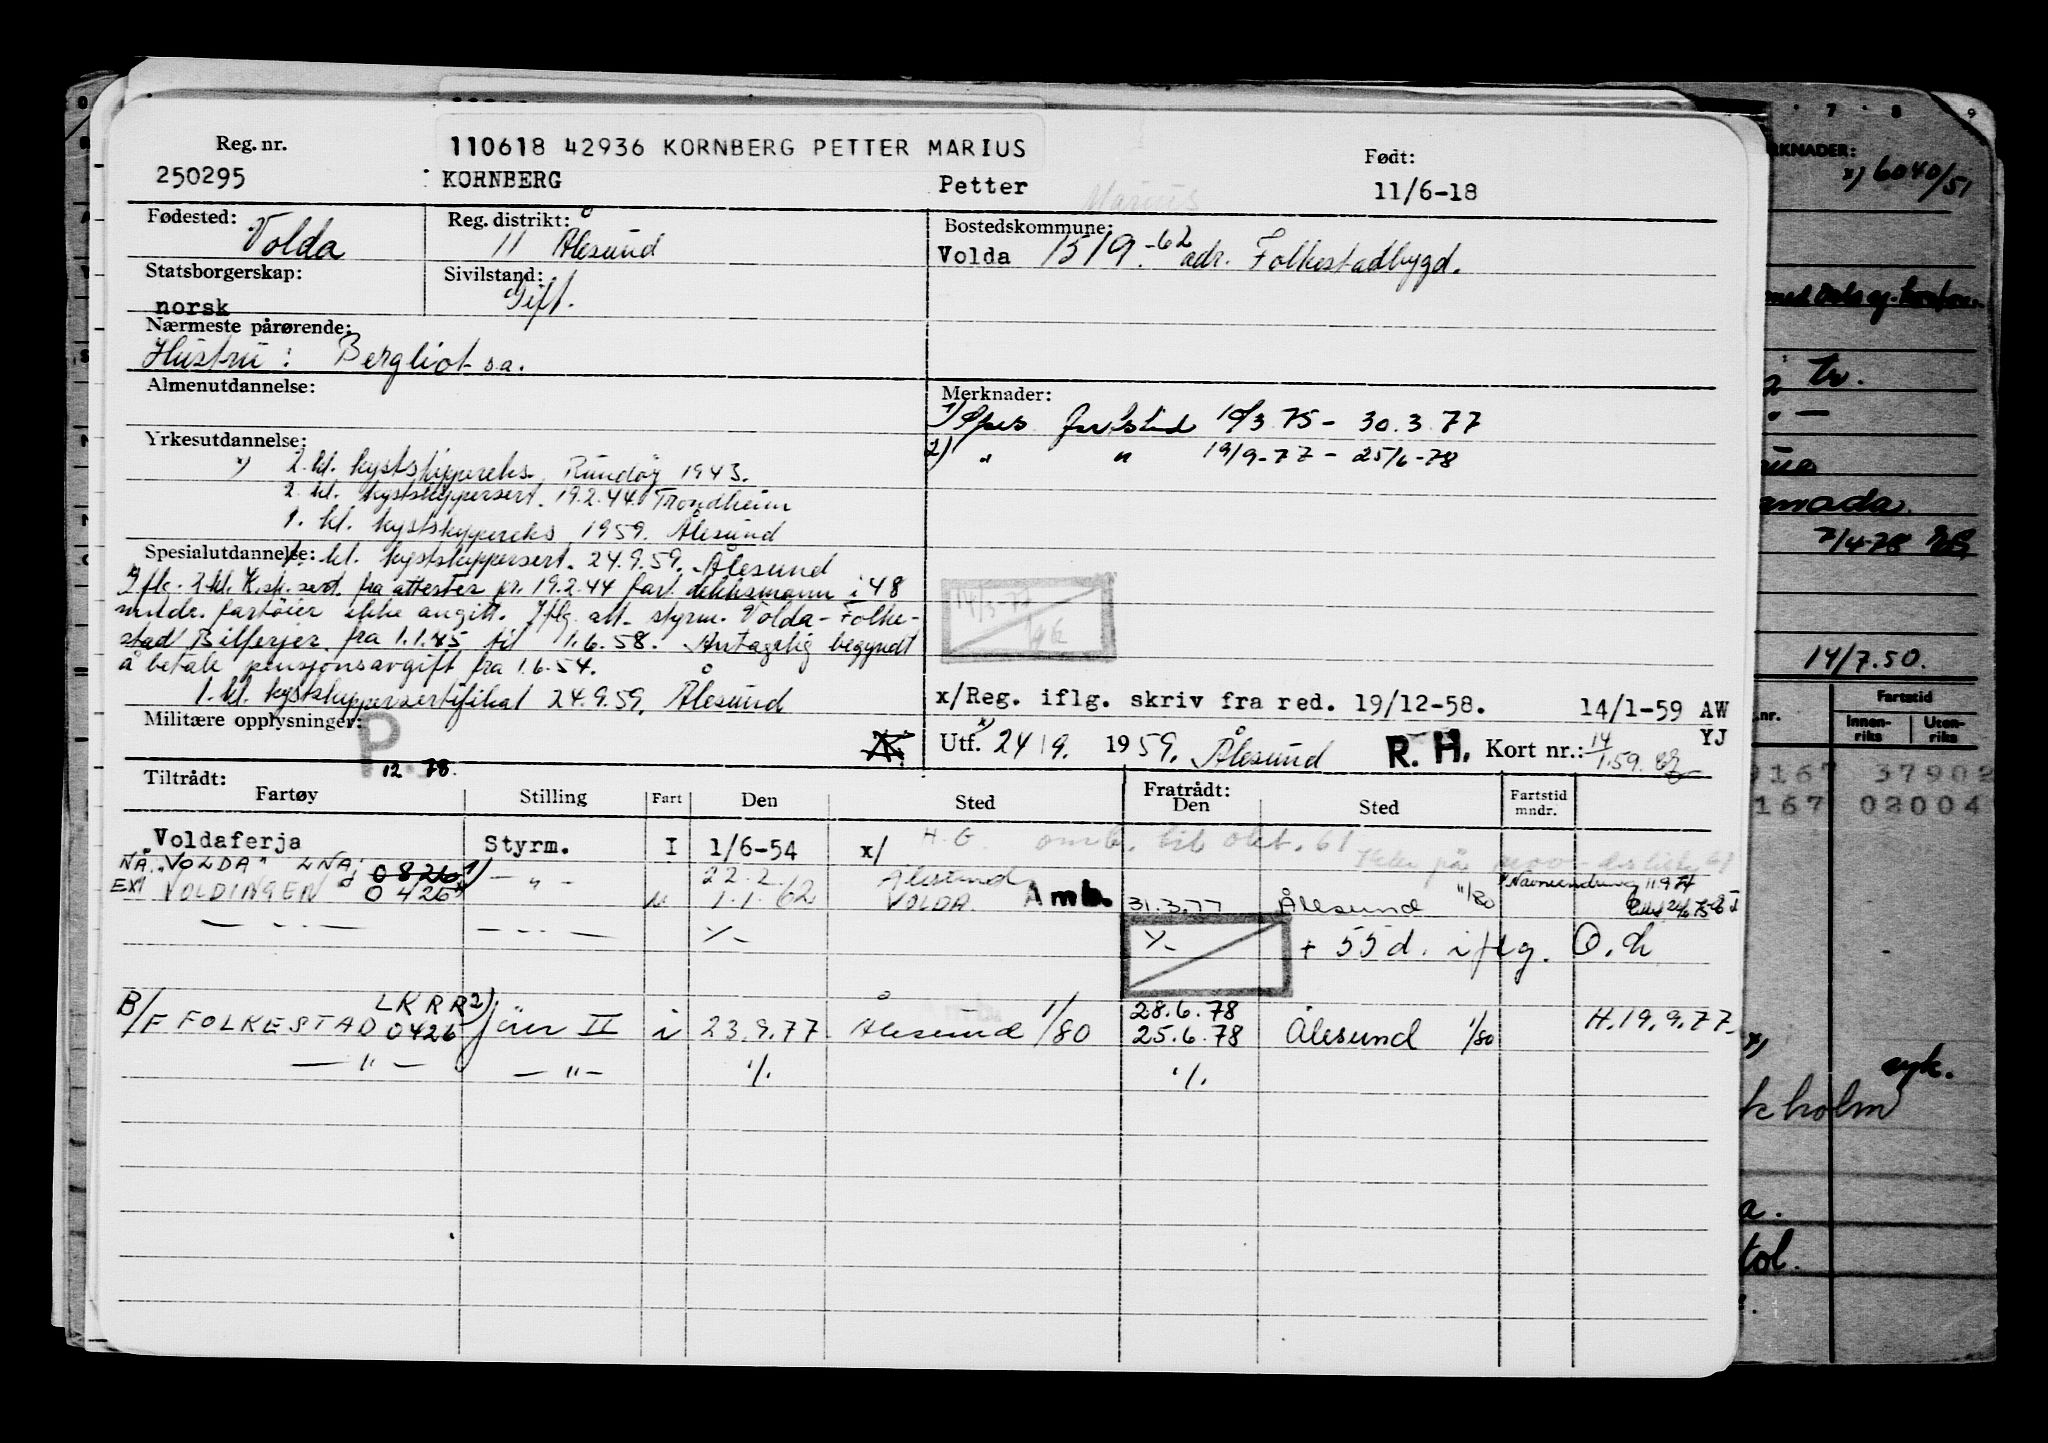 Reg. nr.
110618 42936 KORNBERG PETTER MARIUS
Født:
250295
KORNBERG
Petter
Marius
11/6-18
Fødested:
Volda
Reg. distrikt:
11 Ålesund
Bostedskommune:
Volda 1519.-62 adr. Folkestadbygd.
Statsborgerskap:
norsk
Sivilstand:
Gift.
Nærmeste pårørende:
Hustru: Bergliot s.a.
Almenutdannelse:
Merknader:
1) 10/3 75 - 30.3.77
2) " " 19/9-77 - 25/6-78
Yrkesutdannelse:
x) 2. kl. kystskippereks. Rundøy 1943.
2. kl. kystskippersert. 19.2.44. Trondheim
1. kl. kystskippereks 1959. Ålesund
Spesialutdannelse:
1. kl. kystskippersert. 24.9.59. Ålesund
x) Iflg. 2 kl. K.sk. sert. fra attester pr. 19.2.44 fart dekksmann i 48
mndr. fartøier ikke angitt. Iflg. att. styrm. Volda-Folke-
stad Bilferjer fra 1.1.45 til 1.6.58. Antagelig begyndt
å betale pensjonsavgift fra 1.6.54.
1. kl. kystskippersertifikat 24.9.59. Ålesund
14/3-77
x/Reg. iflg. skriv fra red. 19/12-58. 14/1-59 AW
YJ
Militære opplysninger:
P
12 78.
Utf. 24/9. 1959. Ålesund R. H. Kort nr.: 14/1.59.
Tiltrådt:
Fartøy
Stilling
Fart
Den
Sted
Fratrådt:
Den
Sted
Fartstid
mndr.
Voldaferja Styrm. I 1/6-54 x/ H.G. omb. til okt. 61
NÅ "VOLDA" LNAJ 0826 1) - " - 22.2. Ålesund
x) Navneendring 11.9.74
EX VOLDINGEN 0426 1.1.62 VOLDA Amb. 31.3.77 Ålesund 11/80
— " — — " — ·/- ·/- + 55 d. iflg. O.h
B/F FOLKESTAD LKRR 0426 2) II i 23.9.77 Ålesund 1/80 28.6.78
25.6.78 Ålesund 1/80 H.19.9.77
— " — — " — ·/. ·/.
7 8 9
RKNADER:
x) 6040/51
Tr.
anada.
7/4-78
14/7.50.
Fartstid
.nr.
Innen-
riks
Uten-
riks
9167 37902
167 02004
x)
syk.
kholm
a.
tol.